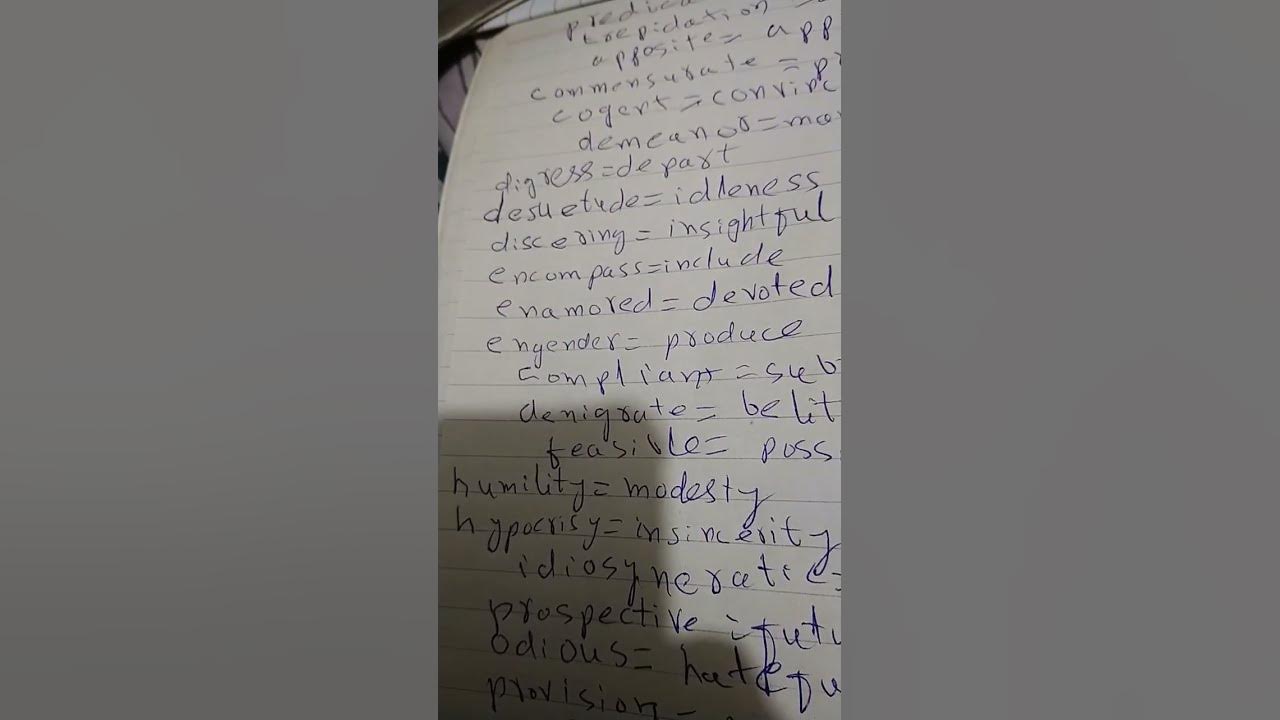 predica
trepidation =
apposite = app
commensurate = pr
cogent = convinc
demeanor = man
digress = depart
desuetude = idleness
discering = insightful
encompass = include
enamored = devoted
engender = produce
compliant = sub
denigrate = belit
feasible = poss
humility = modesty
hypocrisy = insincerity
idiosyneratic =
prospective = futu
odious = hatefu
provision =